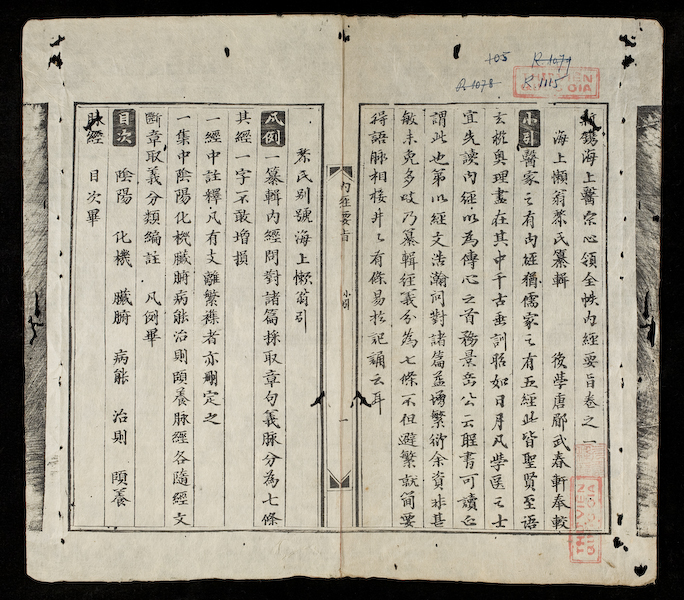 +05
R.1079
R.1078
R.1115
新鐫海上醫宗心領全帙內經要旨卷之一
海上懶翁黎氏纂輯 後學唐郿武春軒奉較
小引 醫家之有內經猶儒家之有五經此皆聖賢至語
玄機奧理盡在其中千古垂訓昭如日月凡學医之士
宜先讀內經以為傳心之首務景岳公云醫書可讀亡
謂此也第以經文浩瀚问對諸篇並增繁衍余資非甚
敏未免多岐乃纂輯經義分為七條不但避繁就简要
得語脉相接井々有條易於記誦云耳
內經要旨 小引 一
黎氏别號海上懶翁引
凡例 一纂輯內經問對諸篇採取章句義脉分為七條
其經一字不敢增損
一經中註釋凡有支離繁襍者亦刪定之
一集中陰陽化機臟腑病能治則頤養脉經各隨經文
斷章取義分類編註 凡例畢
目次 陰陽 化機 臟腑 病能 治則 頤養
脉經 目次畢
THƯ VIỆN
QUỐC GIA